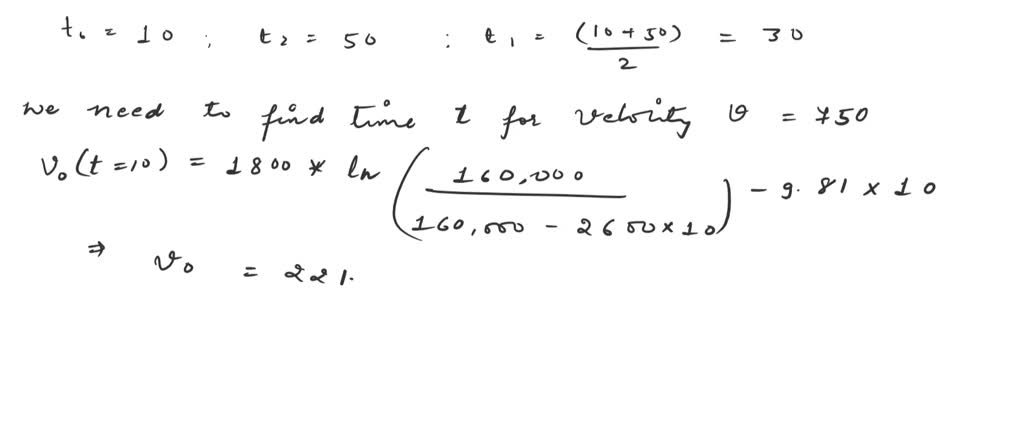 t₀ = 10 ; t₂ = 50 : t₁ = (10+50)/2 = 30
we need to find time t for velocity v = 750
V₀(t=10) = 1800 * ln (160,000 / (160,000 - 2600×10)) - 9.81 × 10
⇒ v₀ = 221.